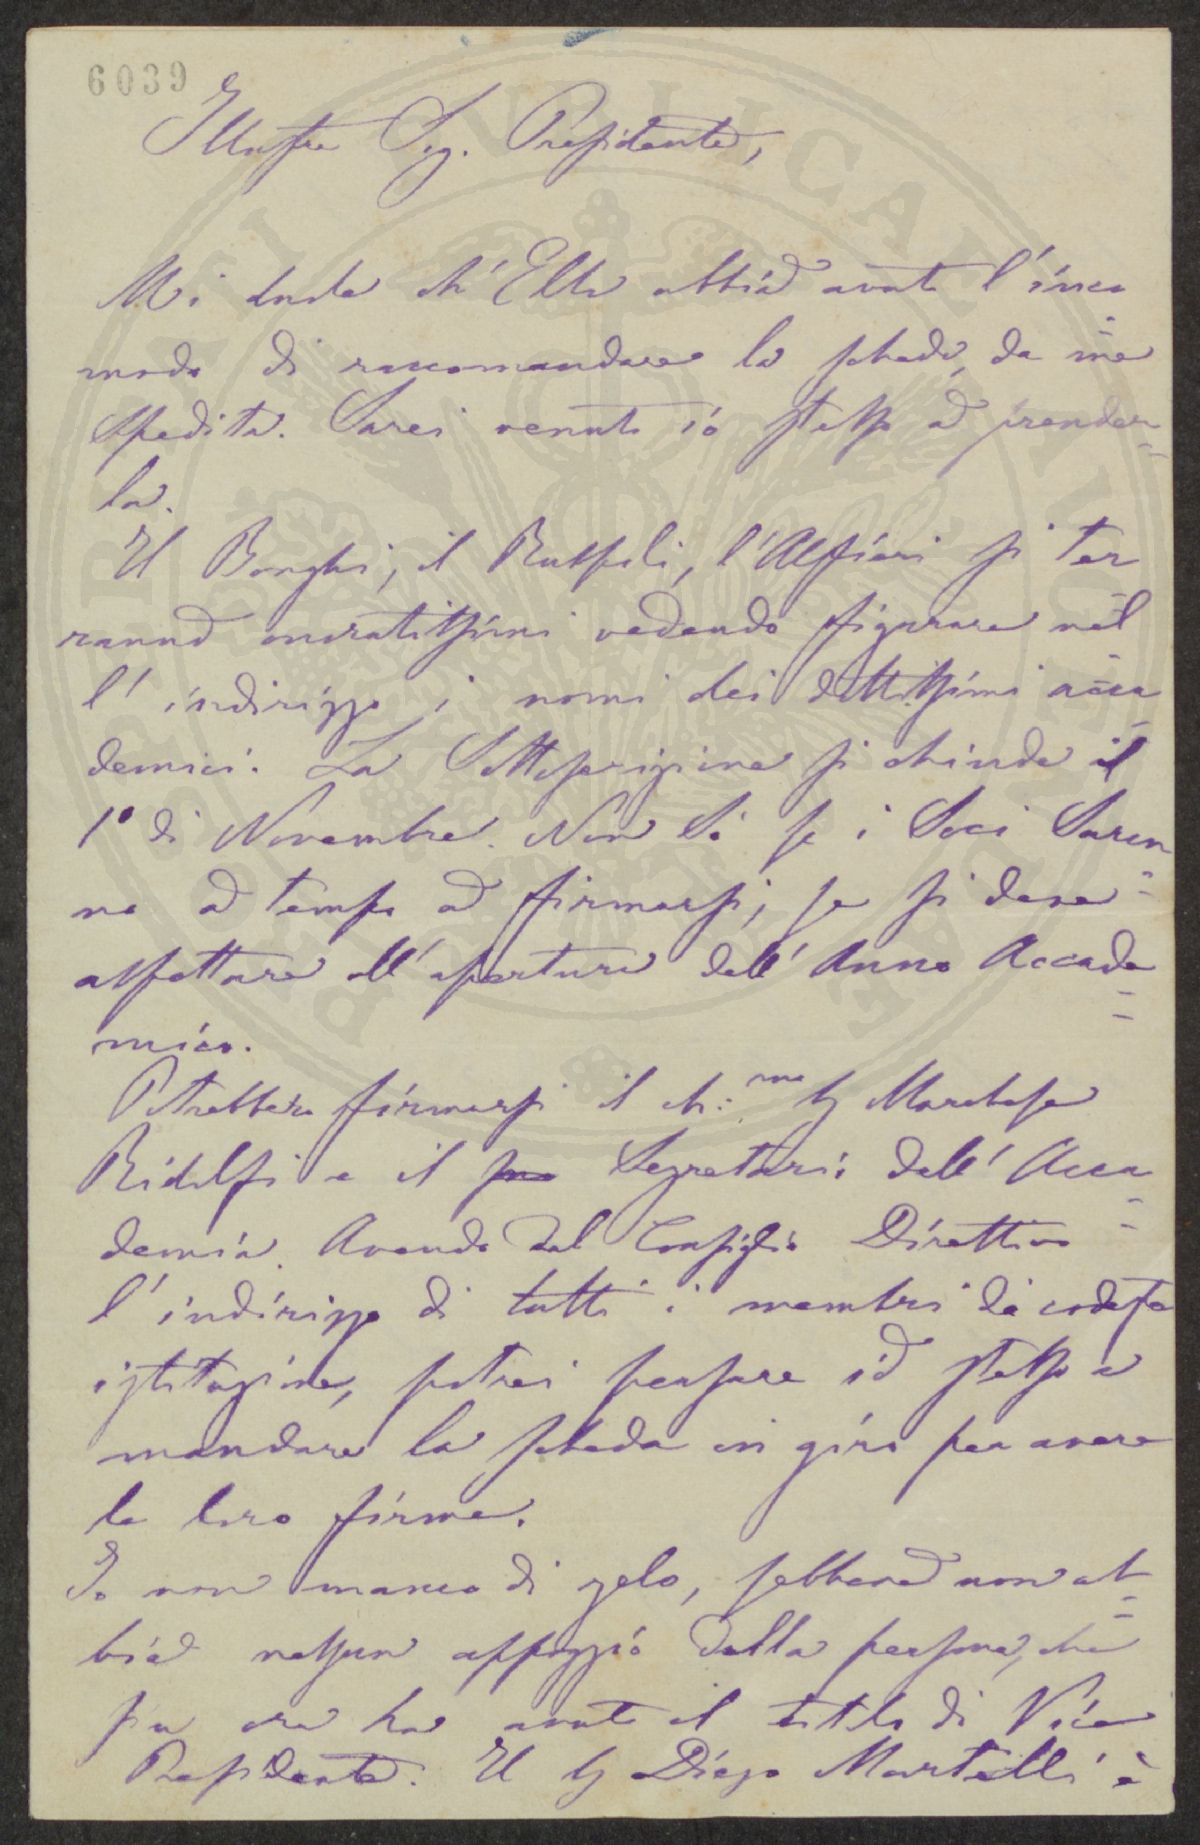 6039
Illustre Sig. Presidente,
Mi duole ch'Ella abbia avuto l'inco
modo di raccomandare la scheda, da me
spedita. Sarei venuto io stesso a prender=
la.
Il Bonghi, il Ruspoli, l'Alfieri si ter=
ranno onoratissimi vedendo figurare nel=
l'indirizzo i nomi dei dottissimi acca=
demici. La Sottoscrizione si chiude il
1º di Novembre. Non So se i Soci Saran=
no a tempo a firmarsi, se si deve
aspettare all'apertura dell'Anno Accade=
mico.
Potrebbero firmarsi il ch:mo Sg Marchese
Ridolfi e il suo Segretario dell'Acca=
demia. Avendo dal Consiglio Direttivo
l'indirizzo di tutti i membri di codesta
istituzione, potrei pensare io stesso a
mandare la scheda in giro per avere
le loro firme.
Io non manco di zelo, sebbene non ab=
bia nessun appoggio della persona, che
fin ora ha avuto il titolo di Vice
Presidente. Il Sg Diego Martelli è